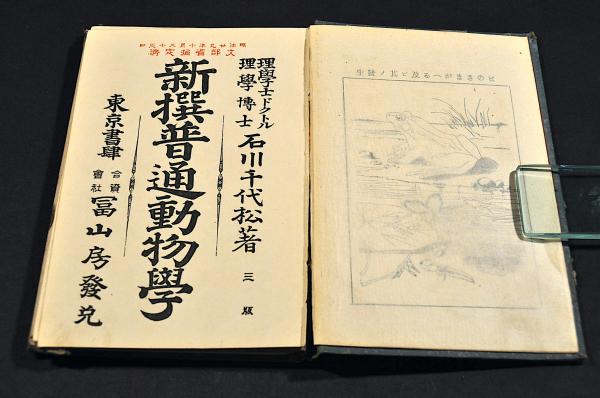 とのさまがへる及ビ其ノ發生
文部省檢定濟
理學士ドクトル
理學博士
石川千代松著
三版
新撰普通動物學
東京書肆
合資
會社
冨山房發兌